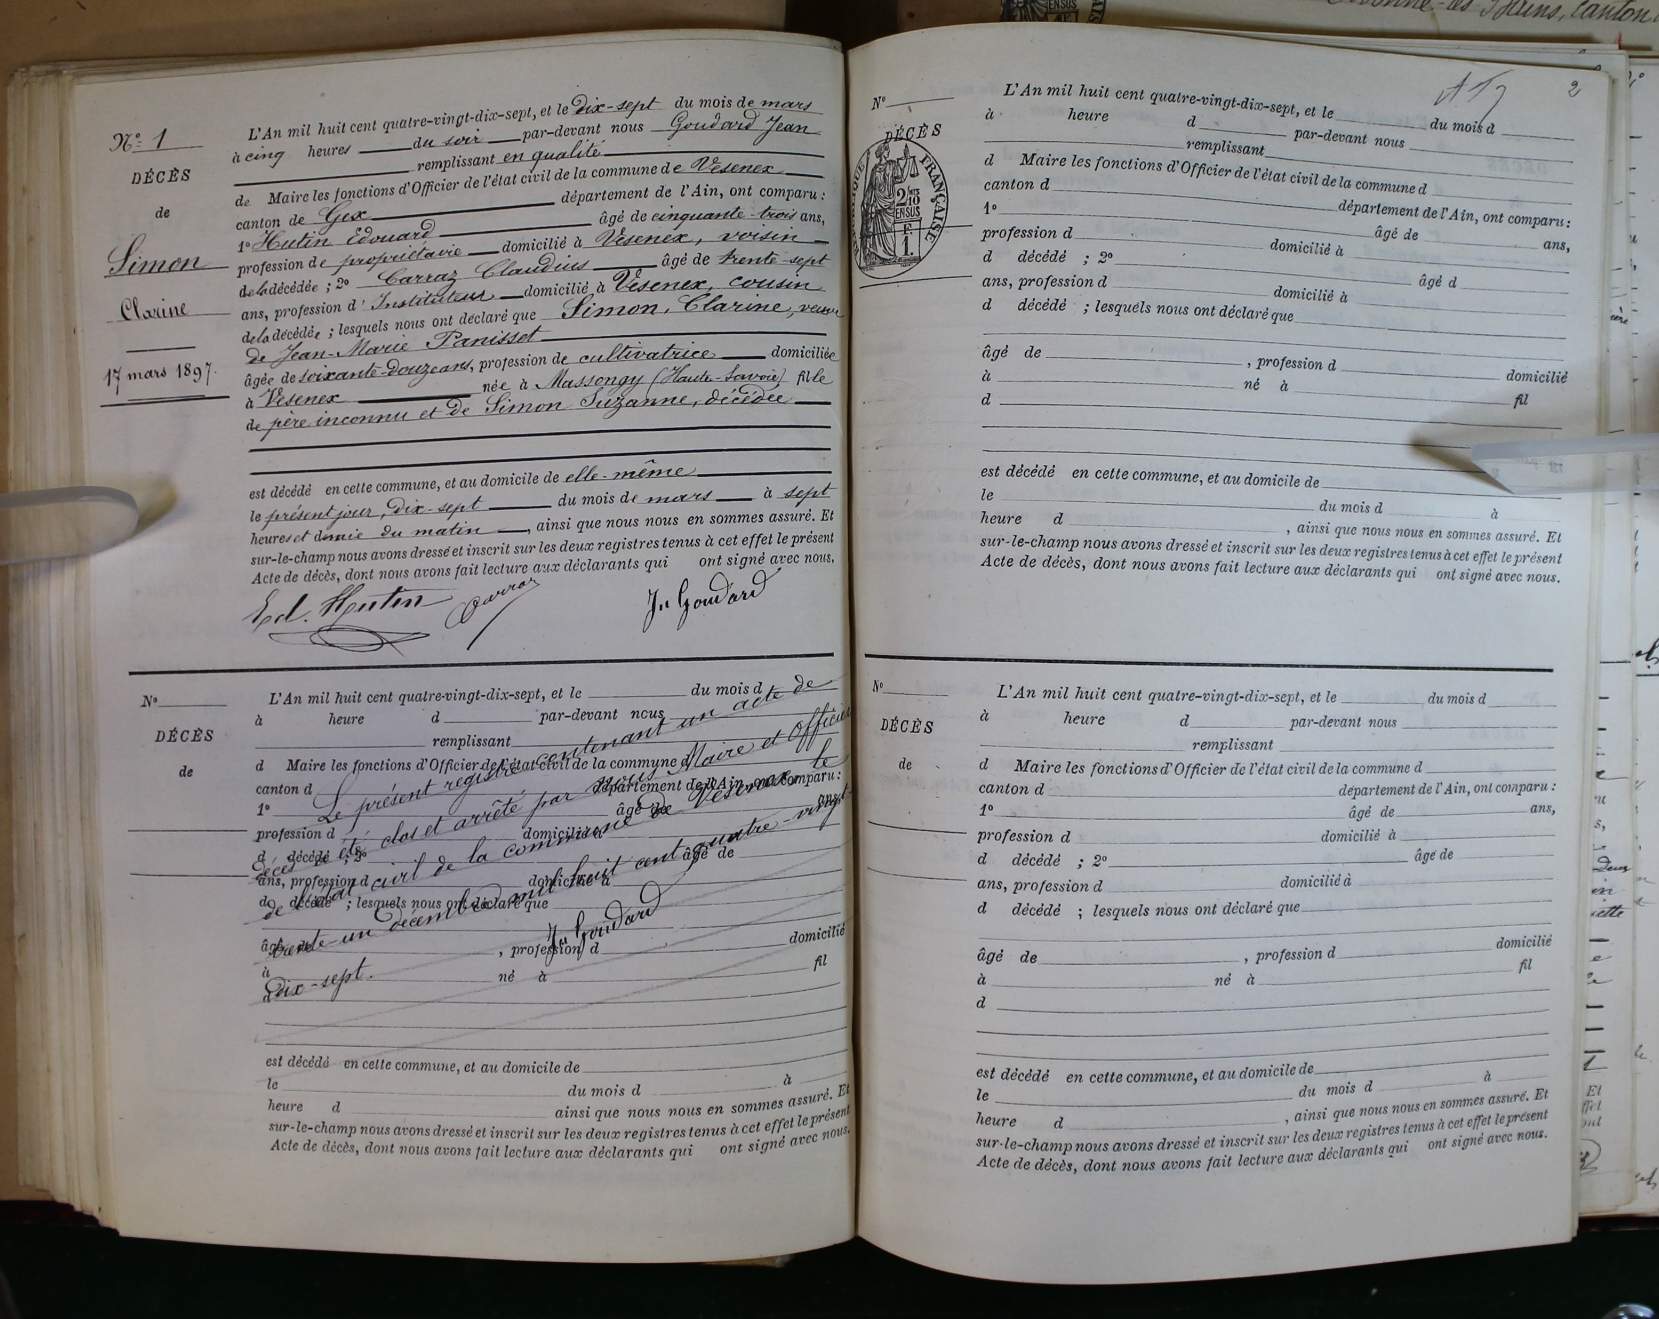 N° 1
DÉCÈS
de
Simon
Clarine
17 mars 1897.
L'An mil huit cent quatre-vingt-dix-sept, et le dix-sept du mois de mars
à cinq heures du soir par-devant nous Goudard Jean
remplissant en qualité
de Maire les fonctions d'Officier de l'état civil de la commune de Vesenex
canton de Gex département de l'Ain, ont comparu :
1° Hutin Edouard âgé de cinquante-trois ans,
profession de propriétaire domicilié à Vesenex, voisin
de la décédée ; 2° Carraz Claudius âgé de trente-sept
ans, profession d'Instituteur domicilié à Vesenex, cousin
de la décédée ; lesquels nous ont déclaré que Simon, Clarine, veuve
de Jean-Marie Panisset
âgée de soixante-douze ans, profession de cultivatrice domiciliée
à Vesenex née à Massongy (Haute-Savoie) fille
de père inconnu et de Simon Suzanne, décédée
est décédé en cette commune, et au domicile de elle-même
le présent jour, dix-sept du mois de mars à sept
heures et demie du matin , ainsi que nous nous en sommes assuré. Et
sur-le-champ nous avons dressé et inscrit sur les deux registres tenus à cet effet le présent
Acte de décès, dont nous avons fait lecture aux déclarants qui ont signé avec nous.
Ed. Hutin Carraz Jn Goudard
N°
DÉCÈS
de
L'An mil huit cent quatre-vingt-dix-sept, et le du mois d
à heure d par-devant nous
remplissant
d Maire les fonctions d'Officier de l'état civil de la commune d
canton d département de l'Ain, ont comparu :
1° âgé de ans,
profession d domicilié à
d décédé ; 2° âgé de
ans, profession d domicilié à
d décédé ; lesquels nous ont déclaré que
âgé de , profession d domicilié
à né à fil
d
Le présent registre contenant un acte de
décès a été clos et arrêté par nous Maire et Officier
de l'état civil de la commune de Vesenex le
trente-un décembre mil huit cent quatre-vingt
dix-sept.
Jn Goudard
est décédé en cette commune, et au domicile de
le du mois d à
heure d ainsi que nous nous en sommes assuré. Et
sur-le-champ nous avons dressé et inscrit sur les deux registres tenus à cet effet le présent
Acte de décès, dont nous avons fait lecture aux déclarants qui ont signé avec nous.
2
N°
DÉCÈS
FRANÇAISE
2/10
EN SUS
F.
1.
L'An mil huit cent quatre-vingt-dix-sept, et le du mois d
à heure d par-devant nous
remplissant
d Maire les fonctions d'Officier de l'état civil de la commune d
canton d département de l'Ain, ont comparu :
1° âgé de ans,
profession d domicilié à
d décédé ; 2° âgé d
ans, profession d domicilié à
d décédé ; lesquels nous ont déclaré que
âgé de , profession d domicilié
à né à
d fil
est décédé en cette commune, et au domicile de
le du mois d à
heure d , ainsi que nous nous en sommes assuré. Et
sur-le-champ nous avons dressé et inscrit sur les deux registres tenus à cet effet le présent
Acte de décès, dont nous avons fait lecture aux déclarants qui ont signé avec nous.
N°
DÉCÈS
de
L'An mil huit cent quatre-vingt-dix-sept, et le du mois d
à heure d par-devant nous
remplissant
d Maire les fonctions d'Officier de l'état civil de la commune d
canton d département de l'Ain, ont comparu :
1° âgé de ans,
profession d domicilié à
d décédé ; 2° âge de
ans, profession d domicilié à
d décédé ; lesquels nous ont déclaré que
âgé de , profession d domicilié
à né à fil
d
est décédé en cette commune, et au domicile de
le du mois d à
heure d , ainsi que nous nous en sommes assuré. Et
sur-le-champ nous avons dressé et inscrit sur les deux registres tenus à cet effet le présent
Acte de décès, dont nous avons fait lecture aux déclarants qui ont signé avec nous.